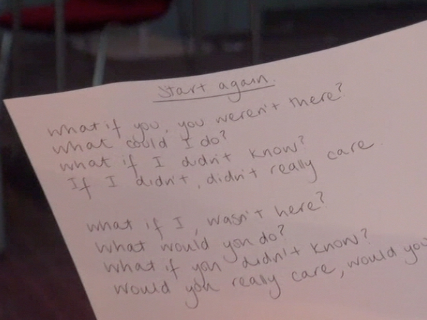 Start again
what if you, you weren't there?
what could I do?
what if I didn't know?
If I didn't, didn't really care
what if I, wasn't here?
What would you do?
What if you didn't know?
Would you really care, would you